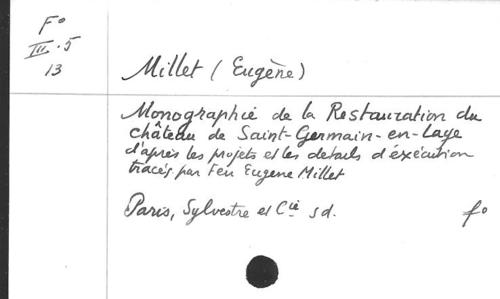 Fº
III.5
13
Millet (Eugène)
Monographie de la Restauration du
château de Saint-Germain-en-Laye
d'après les projets et les details d'éxécution
tracés par Feu Eugene Millet
Paris, Sylvestre et Cie sd.
fº